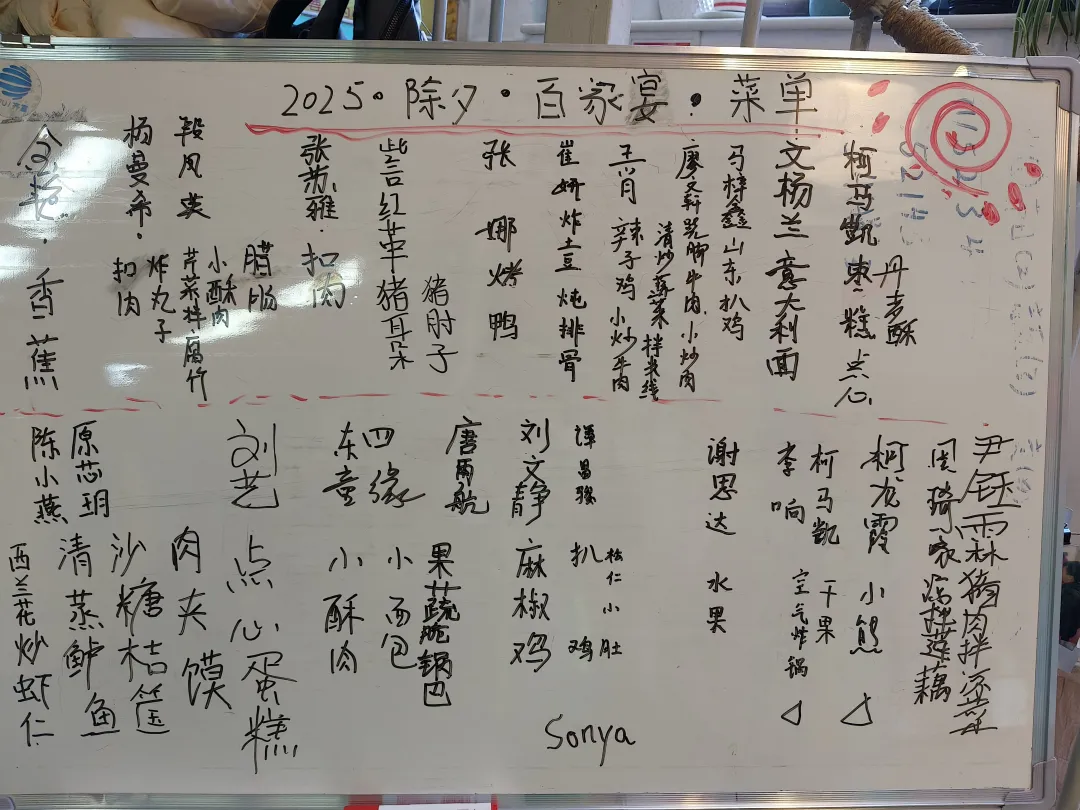 2025·除夕·百家宴·菜单
柯马凯 枣糕点心
丹麦酥
文杨兰意大利面
马梓鑫山东扒鸡
廖文轩跷脚牛肉、小炒肉
清炒菠菜 拌米线
王肖 辣子鸡 小炒牛肉
崔妍炸土豆炖排骨
张娜烤鸭
訾红革猪耳朵
猪肘子
张苏雅·扣肉
段凤英
腊肠
小酥肉
芹菜拌腐竹
炸丸子
杨曼希·扣肉
香蕉
尹钰霖猪肉拌
周琦 莲藕
柯尤霞 小熊
柯马凯 干果
李响 空气炸锅
谢思达 水果
谭昌骏 扒鸡
松仁小肚
刘文静 麻椒鸡
Sonya
唐雨航 果蔬脆锅巴
四缘 小面包
东童 小酥肉
刘艺 点心蛋糕
肉夹馍
沙糖桔筐
原芯玥 清蒸鲈鱼
陈小燕 西兰花炒虾仁